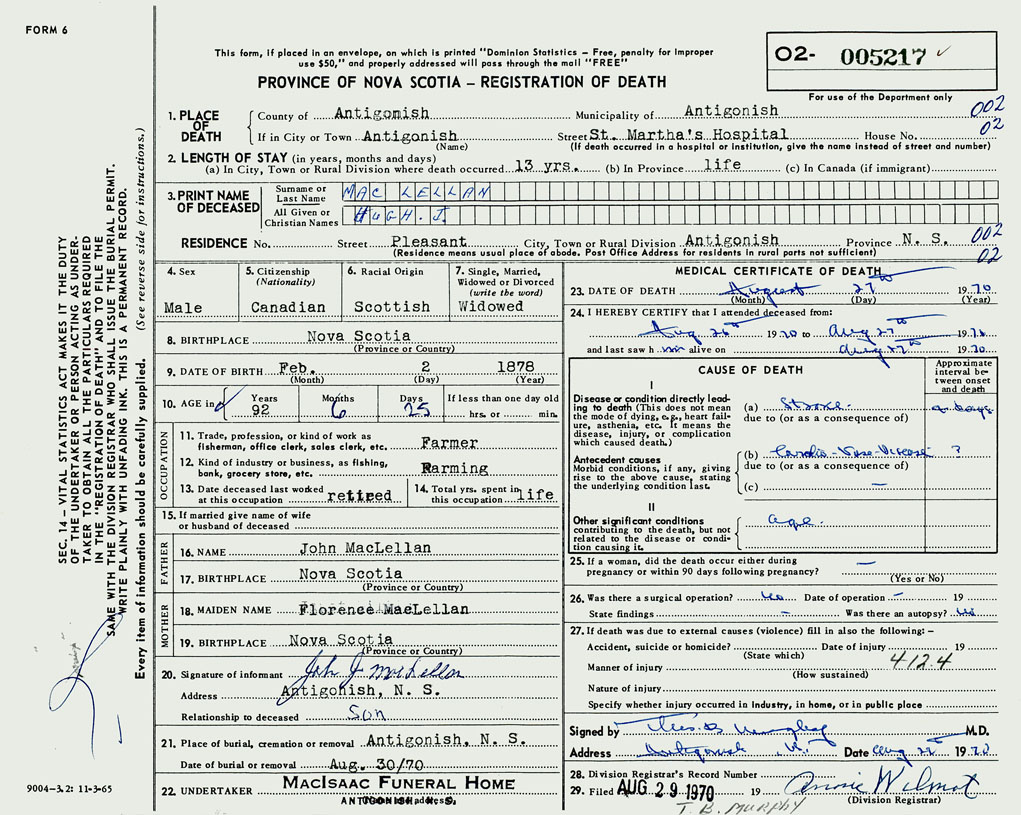 FORM 6
This form, if placed in an envelope, on which is printed "Dominion Statistics – Free, penalty for improper
use $50," and properly addressed will pass through the mail "FREE"
PROVINCE OF NOVA SCOTIA – REGISTRATION OF DEATH
O2- 005217
For use of the Department only
SEC. 14 – VITAL STATISTICS ACT MAKES IT THE DUTY
OF THE UNDERTAKER OR PERSON ACTING AS UNDER-
TAKER TO OBTAIN ALL THE PARTICULARS REQUIRED
IN THE "REGISTRATION OF DEATH" AND TO FILE THE
SAME WITH THE DIVISION REGISTRAR WHO SHALL ISSUE THE BURIAL PERMIT.
WRITE PLAINLY WITH UNFADING INK. THIS IS A PERMANENT RECORD.
Every item of information should be carefully supplied. (See reverse side for instructions.)
1. PLACE OF DEATH County of Antigonish Municipality of Antigonish 002
If in City or Town Antigonish Street St. Martha's Hospital House No. 02
(Name) (If death occurred in a hospital or institution, give the name instead of street and number)
2. LENGTH OF STAY (in years, months and days)
(a) In City, Town or Rural Division where death occurred 13 yrs. (b) In Province life (c) In Canada (if immigrant)
3. PRINT NAME OF DECEASED Surname or Last Name MAC LELLAN
All Given or Christian Names HUGH. J.
RESIDENCE No. Street Pleasant City, Town or Rural Division Antigonish Province N. S. 002
(Residence means usual place of abode. Post Office Address for residents in rural parts not sufficient) 02
4. Sex 5. Citizenship (Nationality) 6. Racial Origin 7. Single, Married, Widowed or Divorced (write the word)
Male Canadian Scottish Widowed
8. BIRTHPLACE Nova Scotia
(Province or Country)
9. DATE OF BIRTH Feb. 2 1878
(Month) (Day) (Year)
10. AGE in Years Months Days If less than one day old
92 6 25 hrs. or min.
OCCUPATION
11. Trade, profession, or kind of work as
fisherman, office clerk, sales clerk, etc. Farmer
12. Kind of industry or business, as fishing,
bank, grocery store, etc. Farming
13. Date deceased last worked at this occupation retired 14. Total yrs. spent in this occupation life
15. If married give name of wife
or husband of deceased
FATHER
16. NAME John MacLellan
17. BIRTHPLACE Nova Scotia
(Province or Country)
MOTHER
18. MAIDEN NAME Florence MacLellan
19. BIRTHPLACE Nova Scotia
(Province or Country)
20. Signature of informant John J MacLellan
Address Antigonish, N. S.
Relationship to deceased Son
21. Place of burial, cremation or removal Antigonish, N. S.
Date of burial or removal Aug. 30/70
22. UNDERTAKER MACISAAC FUNERAL HOME
ANTIGONISH N. S.
9004-3.2: 11-3-65
MEDICAL CERTIFICATE OF DEATH
23. DATE OF DEATH August 27th 1970
(Month) (Day) (Year)
24. I HEREBY CERTIFY that I attended deceased from:
Aug 26th 1970 to Aug 27th 1970
and last saw him alive on Aug 27th 1970
CAUSE OF DEATH
Approximate interval between onset and death
I
Disease or condition directly lead-
ing to death (This does not mean
the mode of dying, e.g., heart fail-
ure, asthenia, etc. It means the
disease, injury, or complication
which caused death.)
(a) Stroke days
due to (or as a consequence of)
Antecedent causes
Morbid conditions, if any, giving
rise to the above cause, stating
the underlying condition last.
(b) Cardio-Vasc-Disease ?
due to (or as a consequence of)
(c) —
II
Other significant conditions
contributing to the death, but not
related to the disease or condi-
tion causing it.
age
25. If a woman, did the death occur either during
pregnancy or within 90 days following pregnancy? —
(Yes or No)
26. Was there a surgical operation? No Date of operation – 19
State findings – Was there an autopsy? No
27. If death was due to external causes (violence) fill in also the following: –
Accident, suicide or homicide? Date of injury 19
(State which) 4124
Manner of injury
(How sustained)
Nature of injury
Specify whether injury occurred in industry, in home, or in public place
Signed by M.D.
Address Antigonish Date Aug 1970
28. Division Registrar's Record Number
29. Filed AUG 29 1970 19 Annie Wilmot
(Division Registrar)
T. B. MURPHY